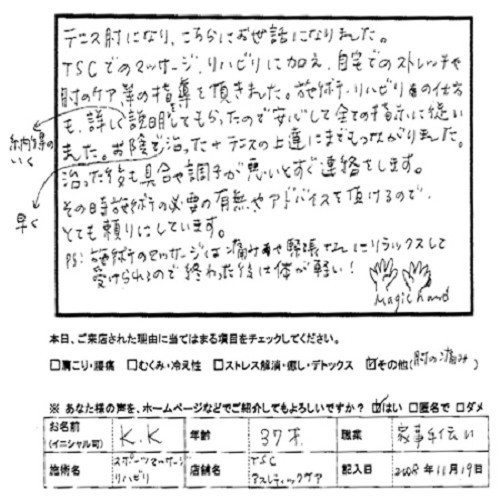 テニス肘になり、こちらにお世話になりました。
TSCでのマッサージ、リハビリに加え、自宅でのストレッチや
肘のケア等の指導を頂きました。施術・リハビリの仕方
も、詳しく説明してもらったので安心して全ての指示に従い
ました。お陰で治った+テニスの上達にまでもつながりました。
納得の
いく
早く
治った後も具合や調子が悪いとすぐ連絡をします。
その時施術の必要の有無やアドバイスを頂けるので、
とても頼りにしています。
P.S: 施術のマッサージは痛みや緊張なしにリラックスして
受けられるので終わった後は体が軽い!
Magic hand
本日、ご来店された理由に当てはまる項目をチェックしてください。
□肩こり・腰痛 □むくみ・冷え性 □ストレス解消・癒し・デトックス ☑その他(肘の痛み)
※ あなた様の声を、ホームページなどでご紹介してもよろしいですか? ☑はい □匿名で □ダメ
お名前
(イニシャル可) K.K 年齢 37才 職業 家事手伝い
施術名 スポーツマッサージ
リハビリ 店舗名 TSC
アスレティックケア 記入日 2008年11月19日